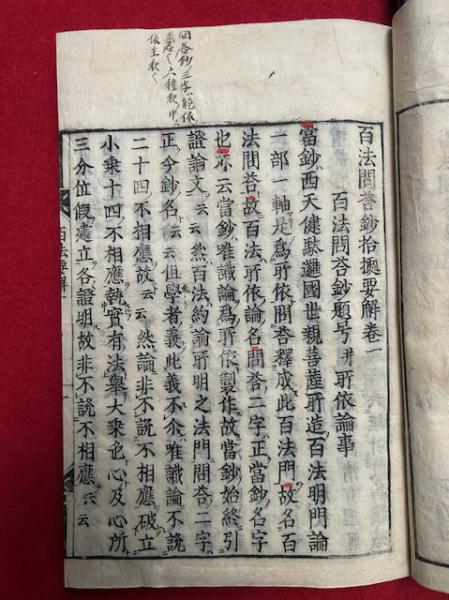 百法問答鈔拾摭要解卷一
百法問答鈔題号并所依論事
當鈔西天健駄邏國世親菩薩所造百法明門論
一部一軸是為所依問答釋成此百法門故名百
法問答故百法所依論名問答二字正當鈔名字
也亦云當鈔唯識論為所依製作故當鈔始終引
證論文云云然百法約論所明之法門問答二字
正今鈔名云云但學者義此義不尒唯識論不說
二十四不相應故云云然論非不說不相應破立
小乘十四不相應執實有法舉大乘也心及心所
三分位假憲立各證明故非不說不相應云云
百法要解一